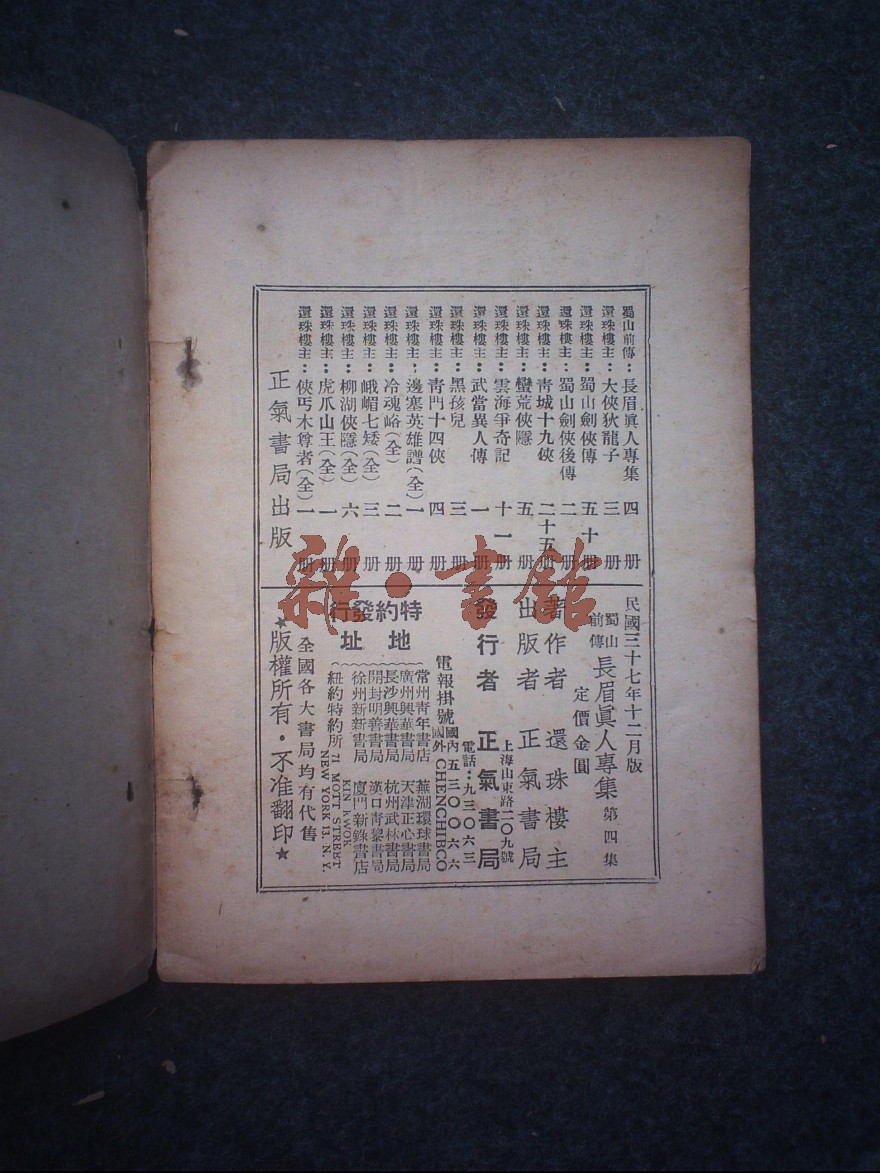 蜀山前傳：長眉眞人專集 四册
還珠樓主：大俠狄龍子 三册
還珠樓主：蜀山劍俠傳 五十册
還珠樓主：蜀山劍俠後傳 二册
還珠樓主：青城十九俠 二十五册
還珠樓主：蠻荒俠隱 五册
還珠樓主：雲海爭奇記 十一册
還珠樓主：武當異人傳 一册
還珠樓主：黑孩兒 三册
還珠樓主：青門十四俠 四册
還珠樓主：邊塞英雄譜(全) 一册
還珠樓主：冷魂峪(全) 二册
還珠樓主：峨嵋七矮(全) 三册
還珠樓主：柳湖俠隱(全) 六册
還珠樓主：虎爪山王(全) 一册
還珠樓主：俠丐木尊者(全) 一册
正氣書局出版
民國三十七年十二月版
蜀山前傳 長眉眞人專集 第四集
定價金圓
著作者 還珠樓主
出版者 正氣書局
上海山東路二〇九號
發行者 正氣書局
電話：九三〇六三
電報掛號 國內五三〇〇六六
國外CHENCHIBCO
特約發行地址
常州青年書店 蕪湖環球書局
廣州興華書局 天津正心書局
長沙興華書局 杭州武林書局
開封明善書局 漢口青藜書局
徐州新新書局 廈門新錄書店
紐約特約所 KIN KWOK
71 MOTT STREET
NEW YORK 13. N. Y.
全國各大書局均有代售
★版權所有・不准翻印★
雜・書館